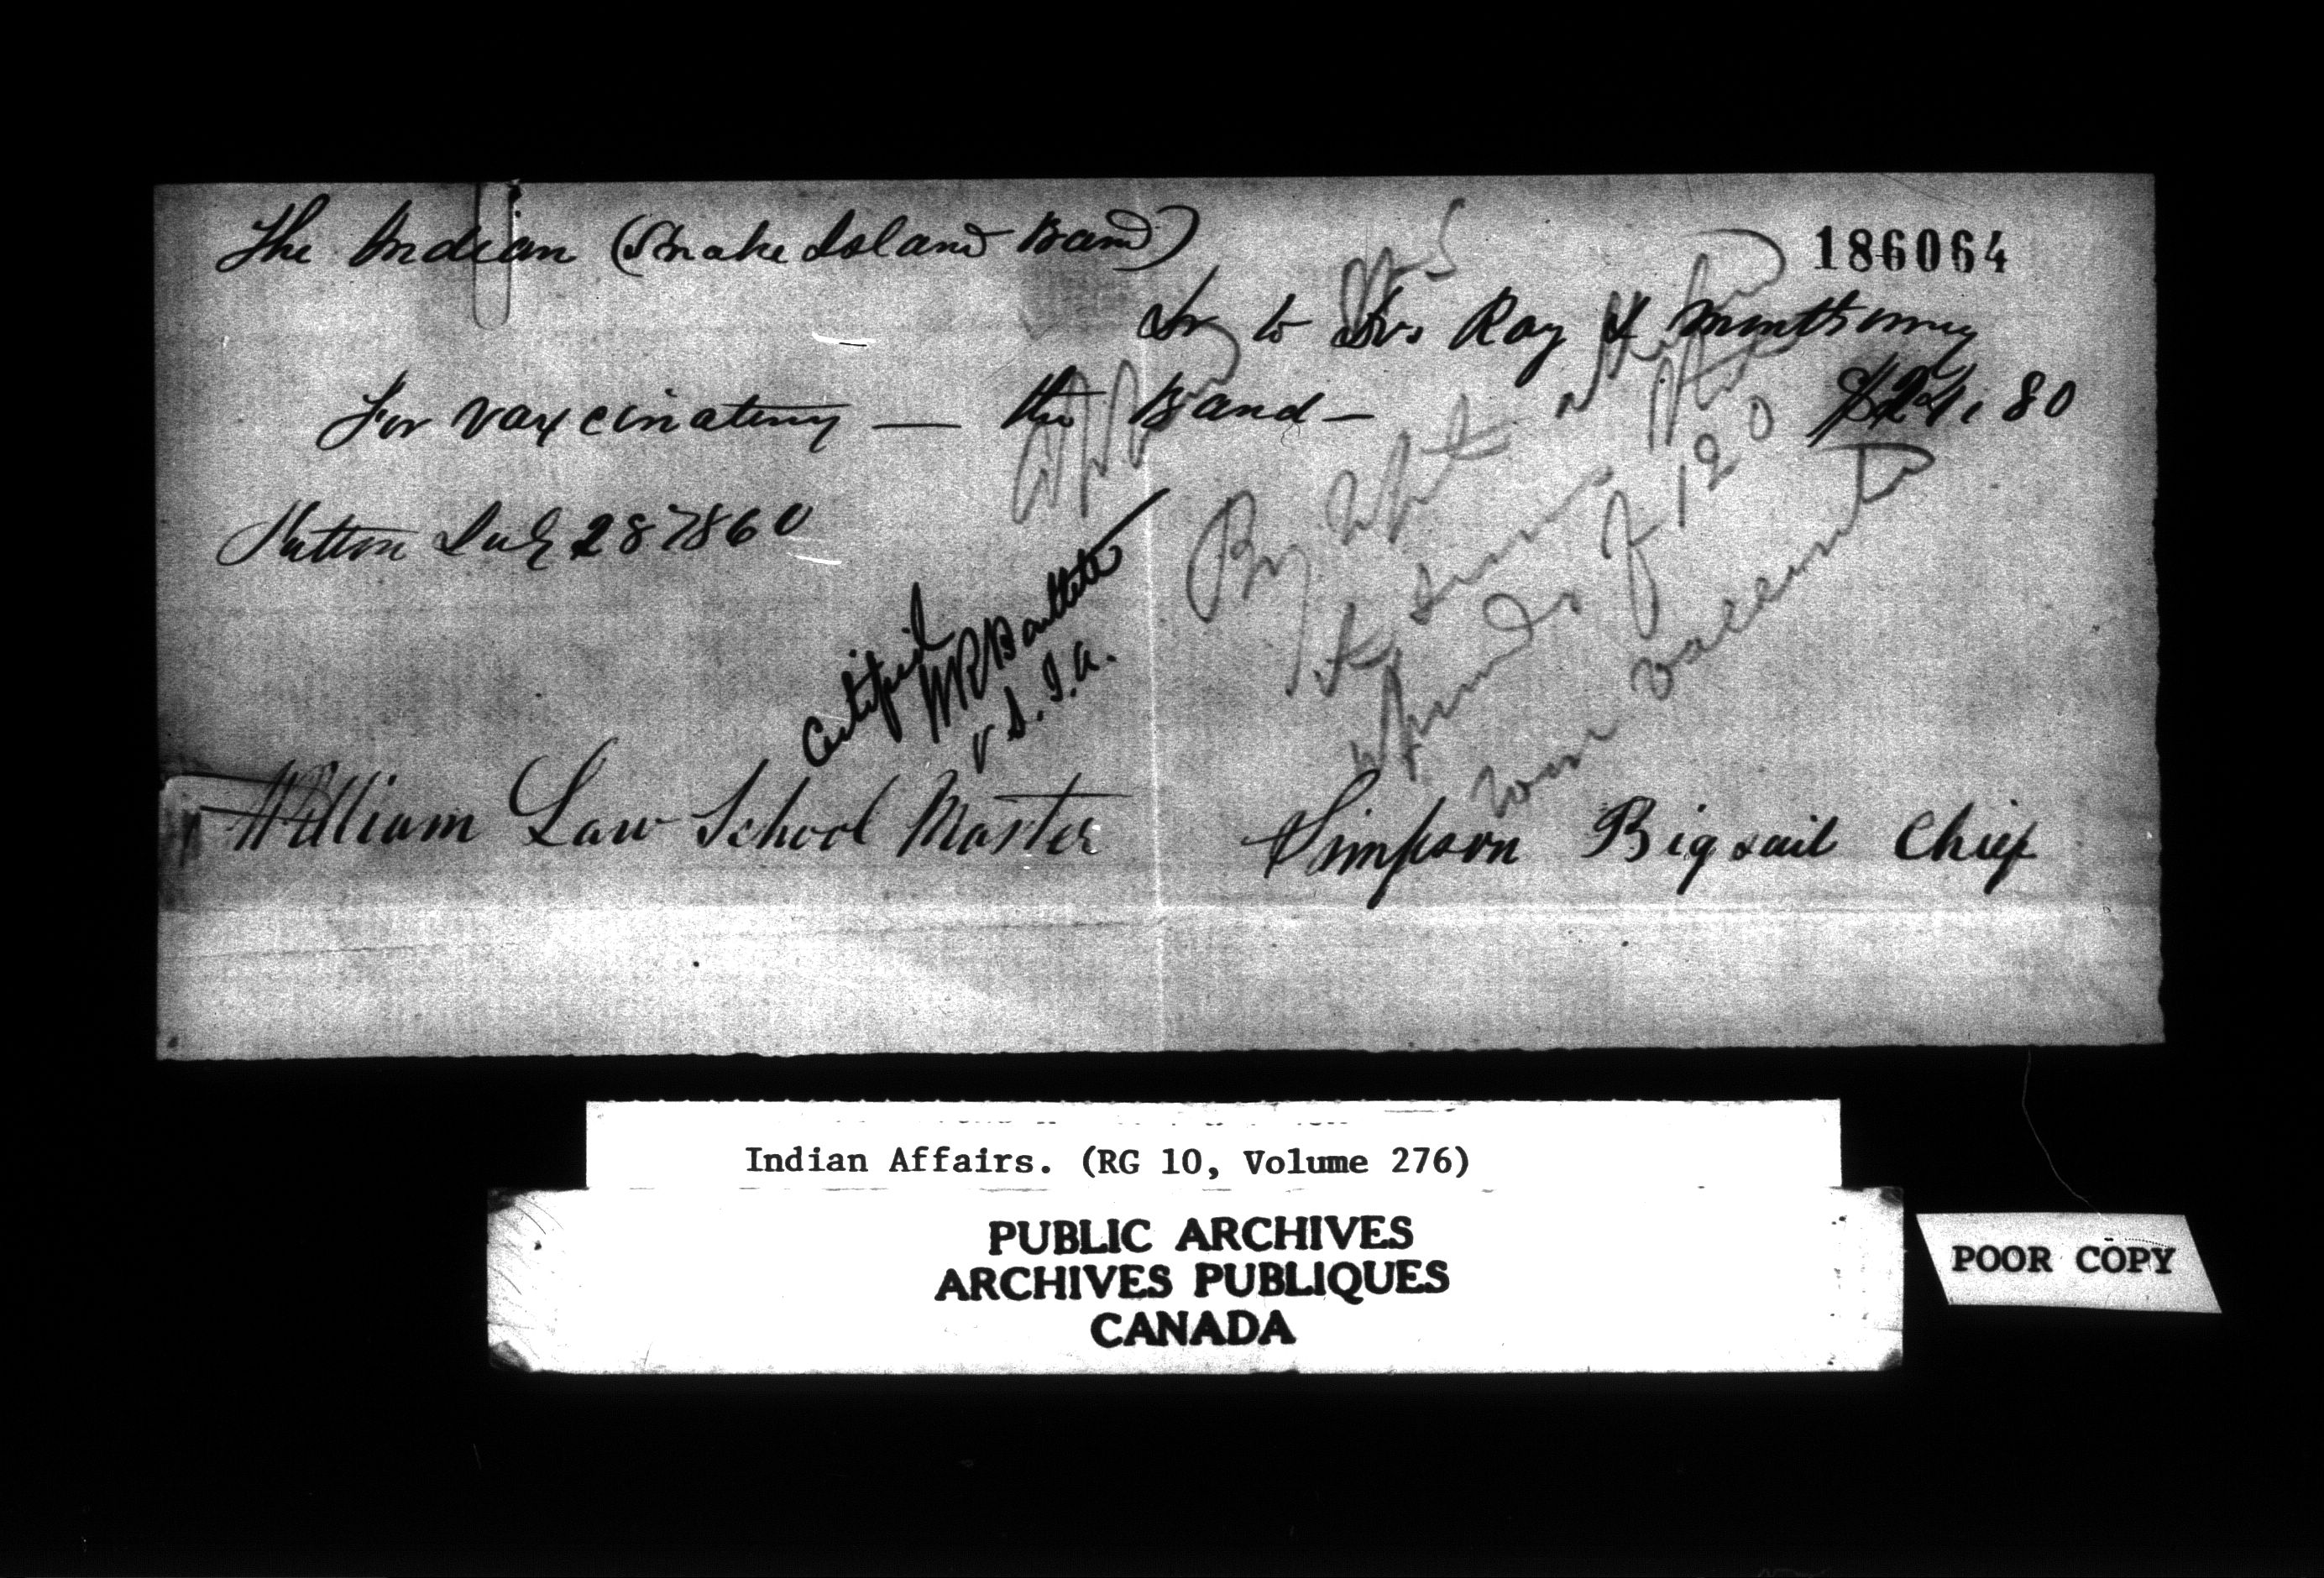 The Indian (Snake Island Band)
186064
Dr to Drs Ray &
For vaxcinating — the Band — $24.80
Sutton July 28 1860
Certified
WRBartlett
V S. I. A.
By
it
funds of 120
were vaccinated
William Law School Master
Simpson Bigsail Chief
Indian Affairs. (RG 10, Volume 276)
PUBLIC ARCHIVES
ARCHIVES PUBLIQUES
CANADA
POOR COPY